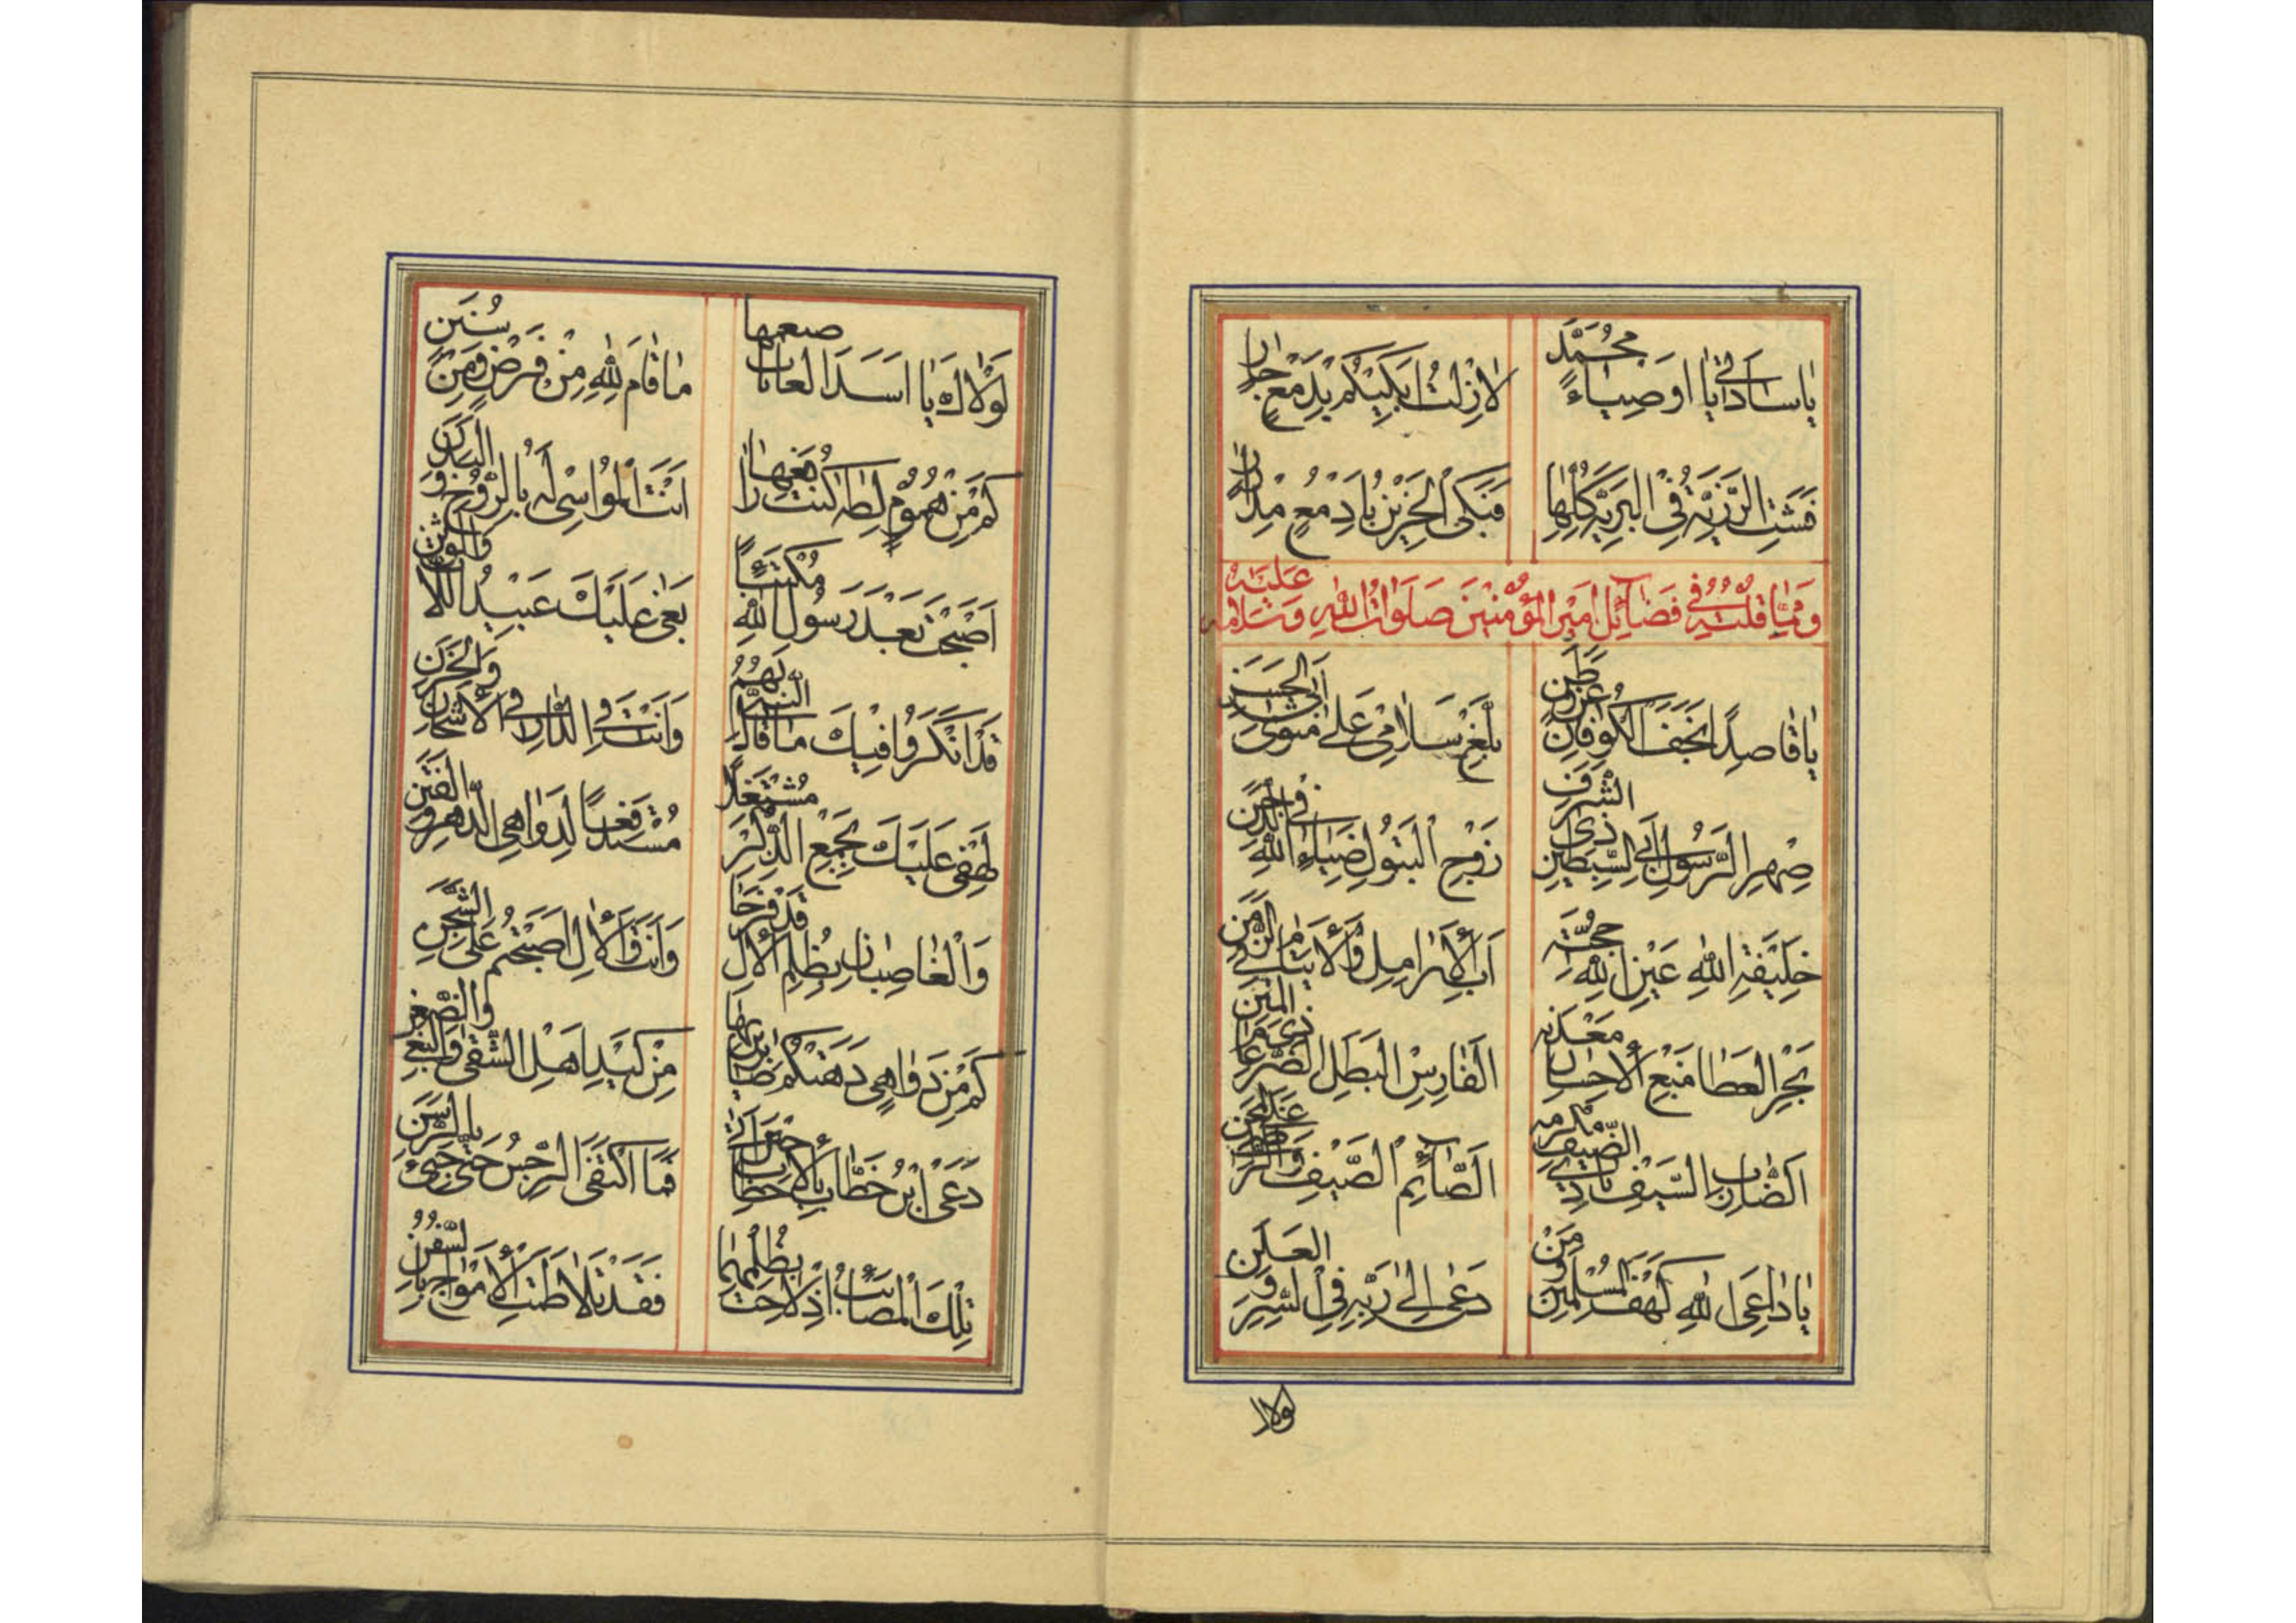 يا ساداتي يا اوصياء محمد
لا زلت ابكيكم بدمع جار
فشت الرزية في البرية كلها
فبكى الحزين بادمع مدرار
ومما قلته في فضائل امير المؤمنين صلوات الله وسلامه عليه
يا قاصدا نجف الكوفان عن وطن
بلغ سلامي على مثوى ابي الحسن
صهر الرسول ابي السبطين ذي الشرف
زوج البتول ضياء الله في
خليفة الله عين الله حجته
اب الارامل والايتام في الزمن
بحر العطا منبع الاحسان معدنه
الفارس البطل الضرغام ذي المنن
الضارب السيف باذي الضيف مكرمه
الصائم الصيف
يا داعي الله كهف المسلمين ومن
دعى الى ربه في السر والعلن
لولا
لولاك يا اسد الغابات
ما قام لله من فرض ومن سنن
كم من هموم لطه كنت دافعها
انت المواسي له بالروح والبدن
اصبحت بعد رسول الله مكتئبا
بغى عليك عبيد اللات والوثن
قد انكروا فيك ما قال النبي لهم
وانت في الدار في الاشجان والحزن
لهفي عليك بجمع الذكر مشتغلا
مستدفعا لدواهي الدهر والفتن
والغاصبان بظلم الال قد فرحا
وانت والال اصبحتم على الشجن
كم من دواهي دهتكم صابرين لها
من كيد اهل الشقى والبغي والضغن
دعى ابن خطاب بالاحطاب حين
فما اكتفى الرجس حتى جيء بالرسن
تلك المصائب اذ لاحت بظلمهما
فقد تلاطمت الامواج بالسفن